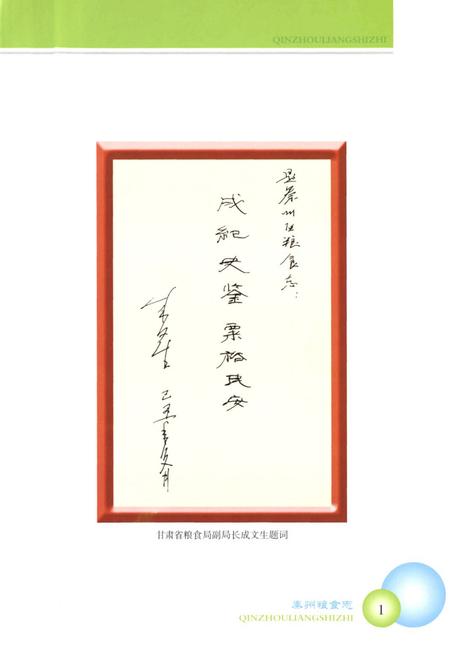 QINZHOULIANGSHIZHI
题秦州区粮食志：
成纪史鉴 粟裕民安
成文生 己丑年夏月
甘肃省粮食局副局长成文生题词
秦州粮食志
QINZHOULIANGSHIZHI
1